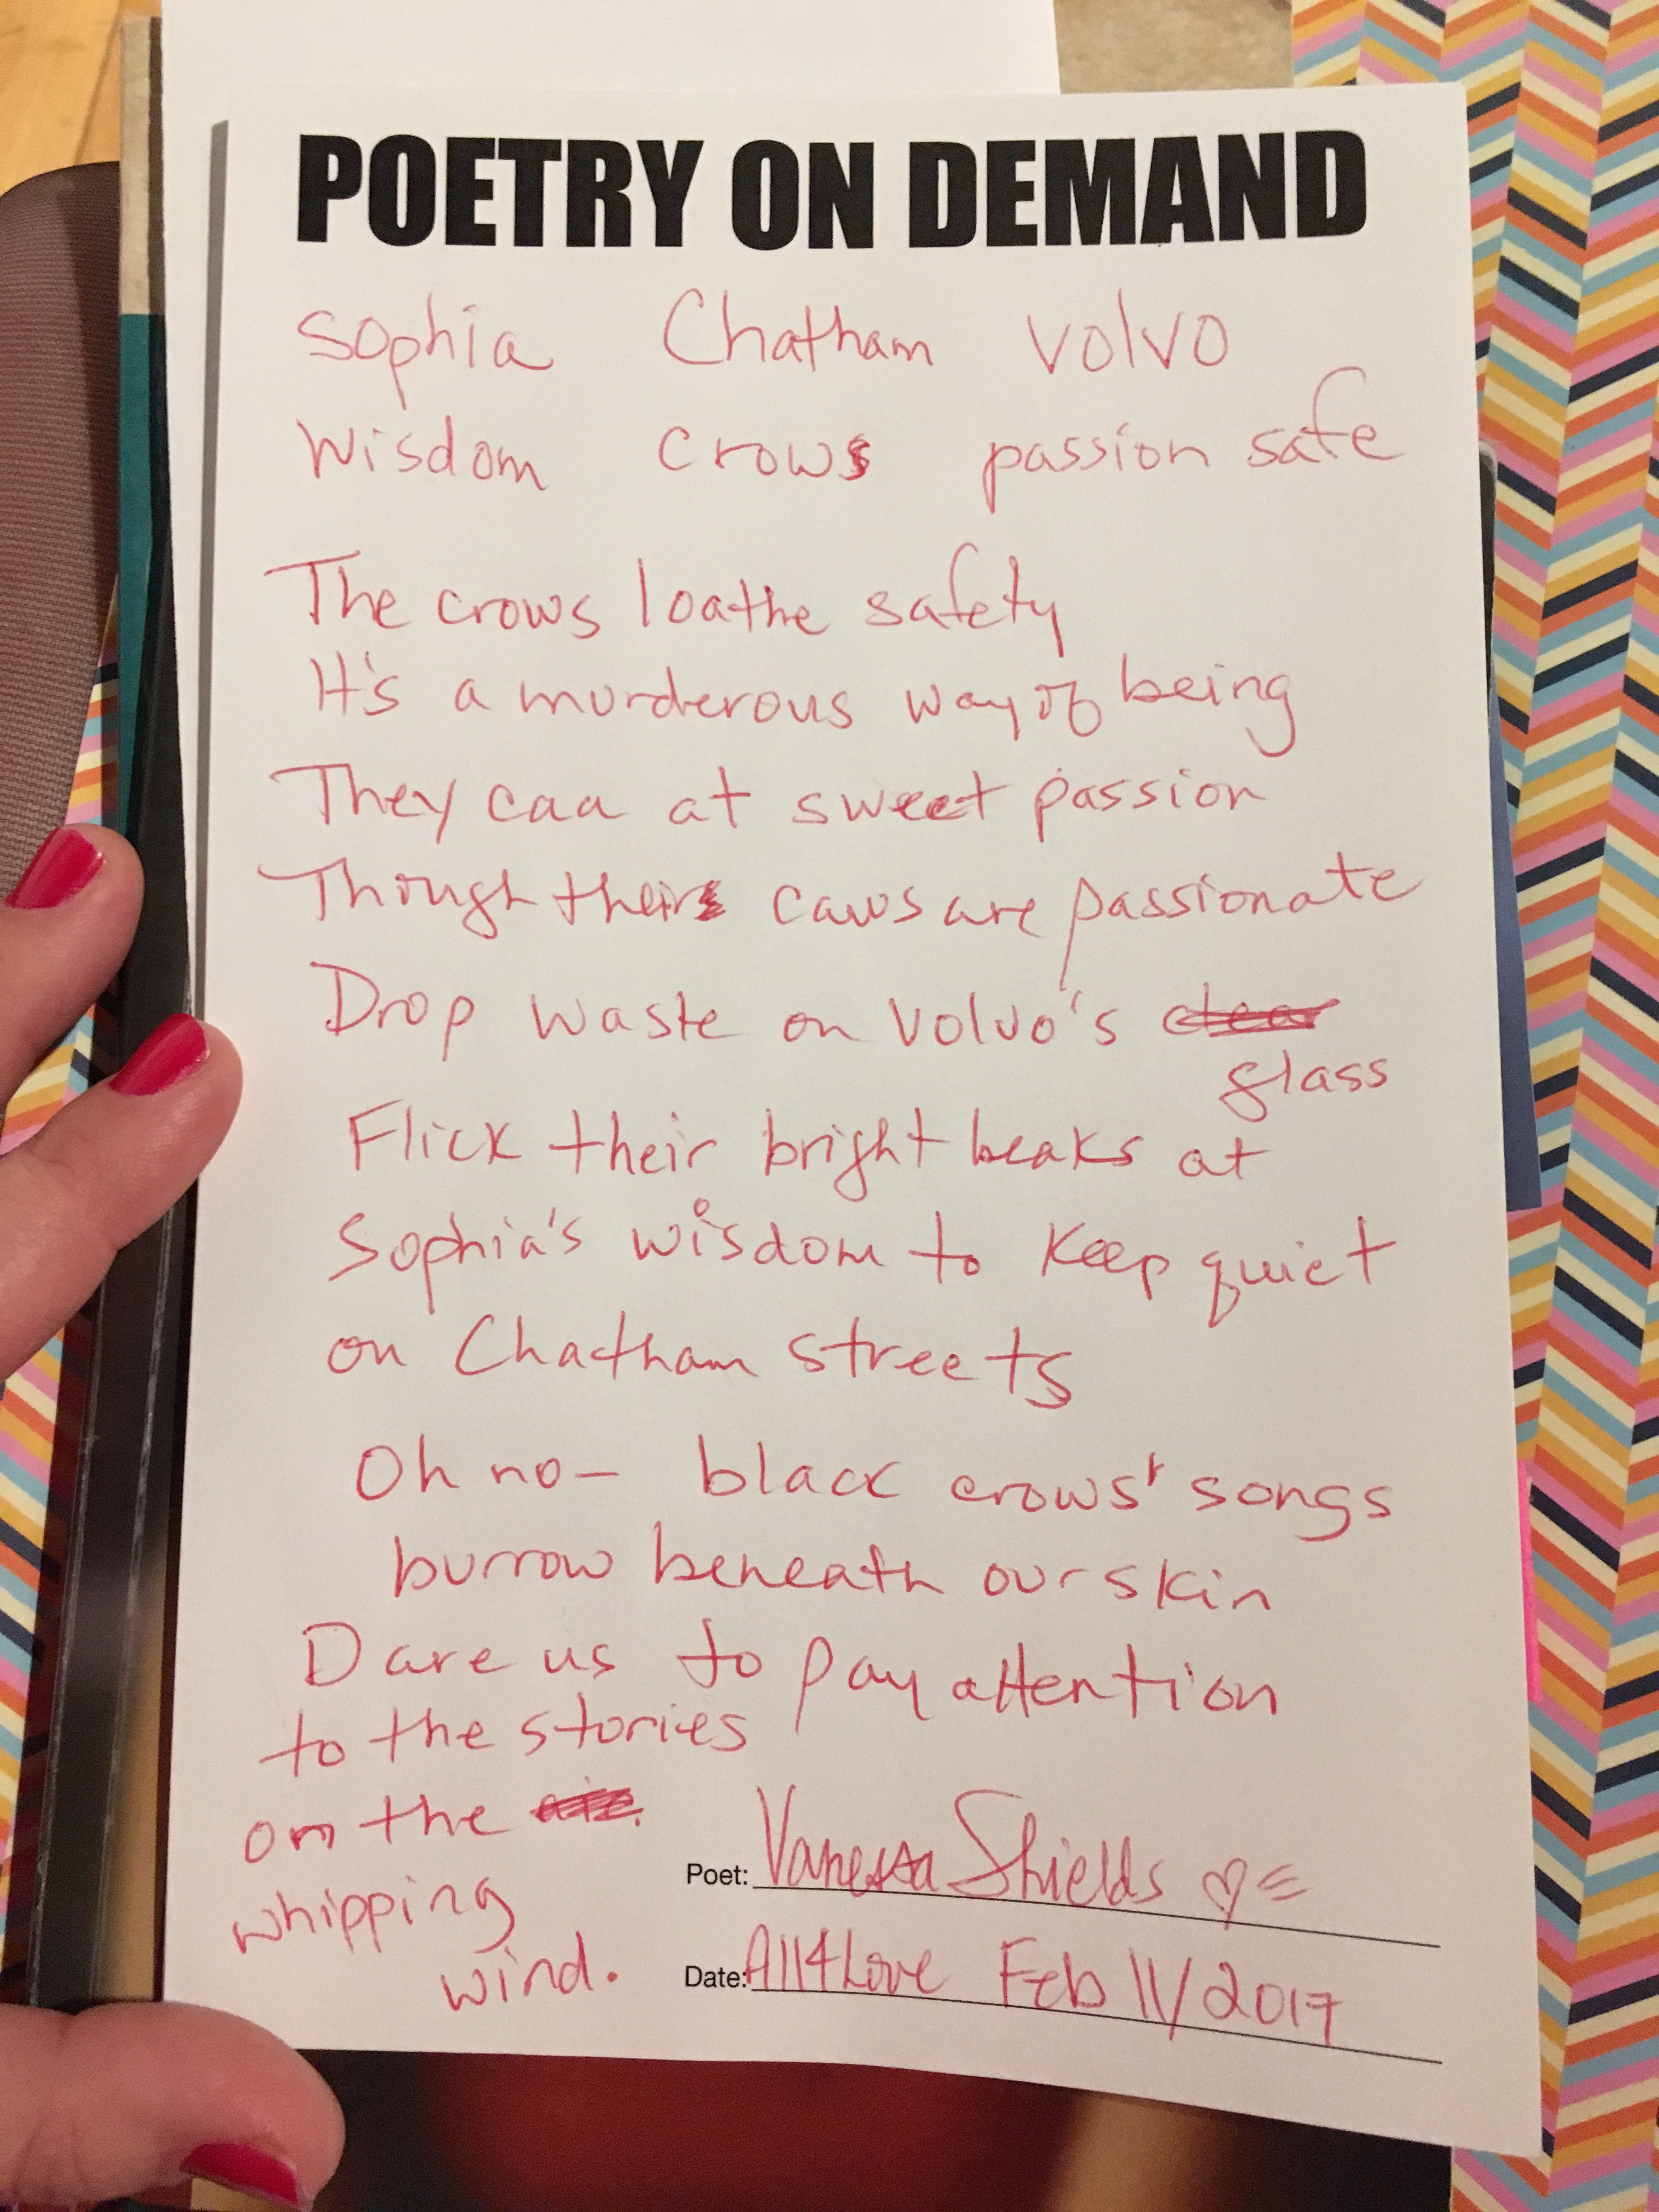 POETRY ON DEMAND
Sophia Chatham Volvo
Wisdom crows passion safe
The crows loathe safety
It's a murderous way of being
They caa at sweet passion
Though their caws are passionate
Drop waste on Volvo's clear
glass
Flick their bright beaks at
Sophia's wisdom to keep quiet
on Chatham streets
Oh no— black crows' songs
burrow beneath our skin
Dare us to pay attention
to the stories
on the
whipping
wind.
Poet: Vanessa Shields ♡=
Date: All4Love Feb 11/2017